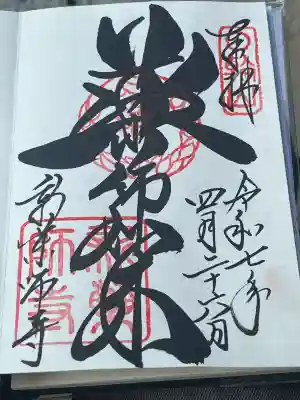 奉拝
令和七年
四月二十六日
薬師如来
新薬師寺